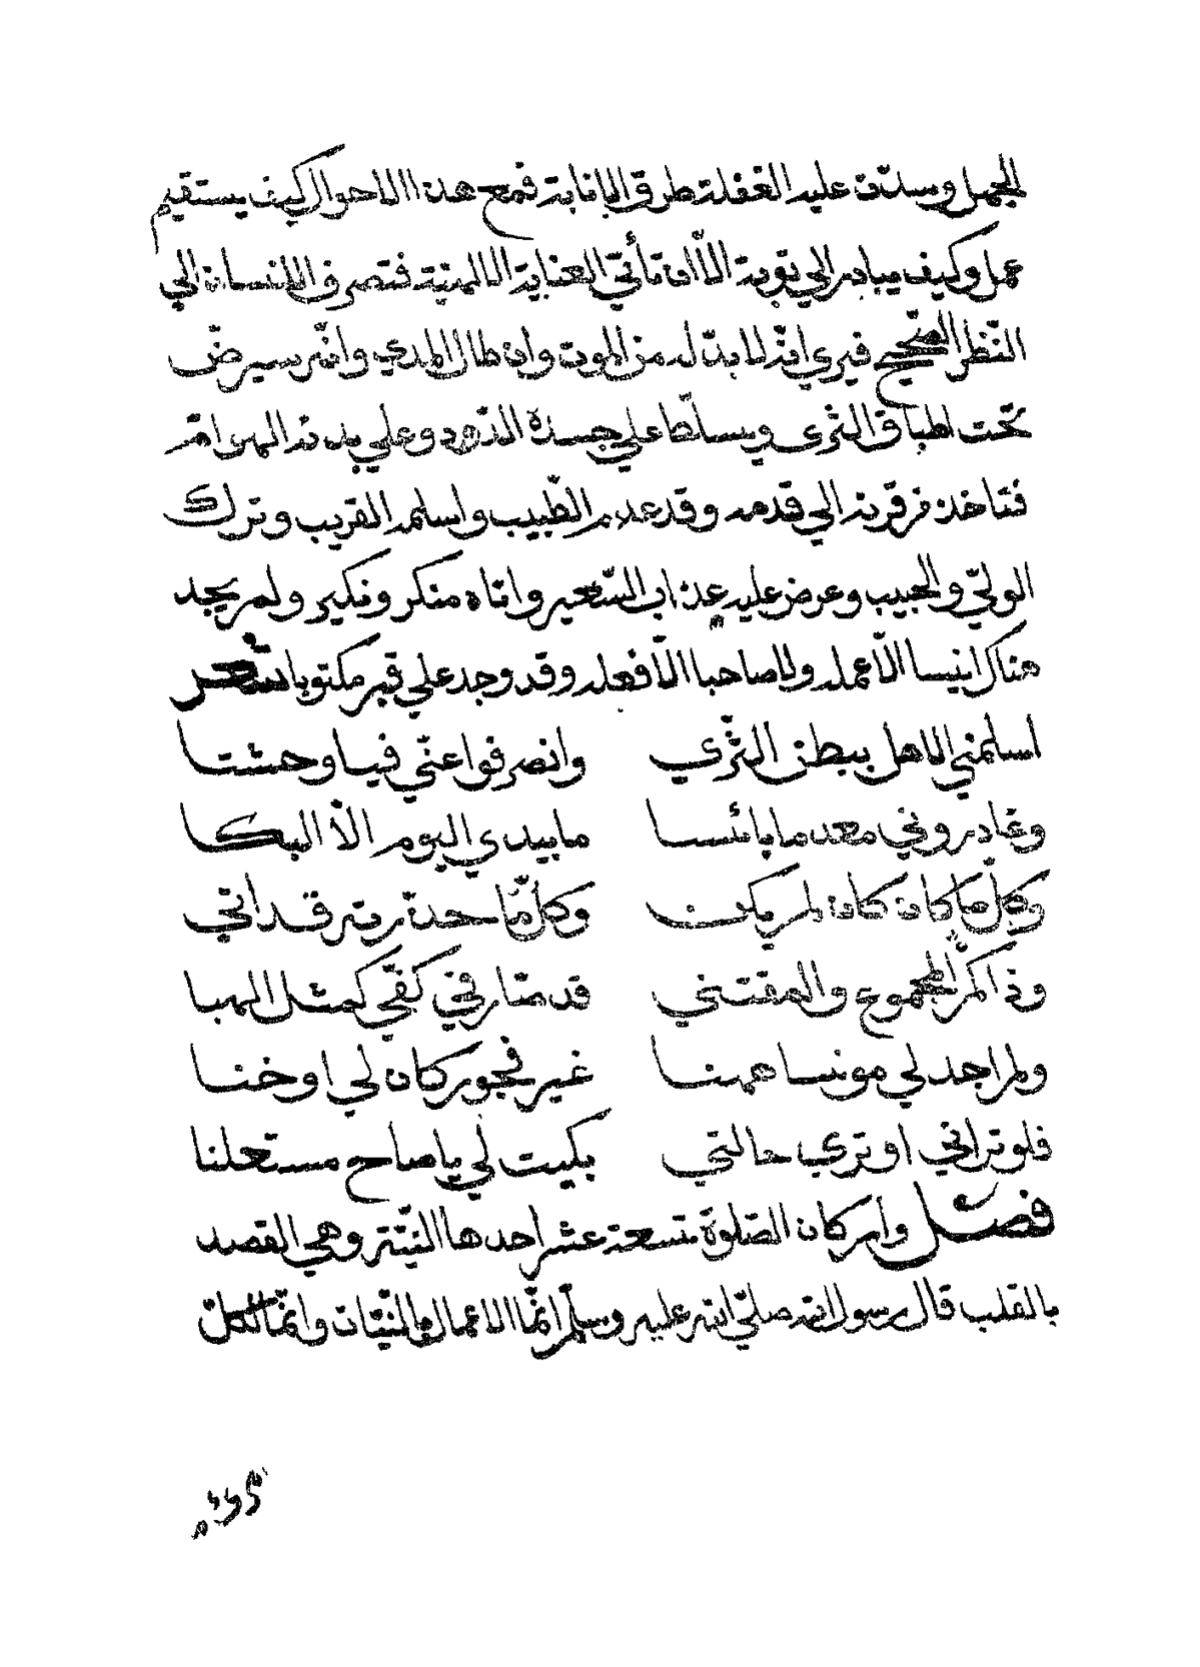 الجهل وسدت عليه الغفلة طرق الانابة فمع هذه الاحوال كيف يستقيم
عمل وكيف يبادر الي توبة الّا ان تأتي العناية الالهية فتصرف الانسان الي
النّظر الصّحيح فيري انه لا بدّ له من الموت وان طال المدي وانه سيرضّ
تحت اطباق الثري ويسلّط علي جسده الدّود وعلي بدنه الهوامّ
فتاخذ من قرنه الي قدمه وقد عدم الطّبيب واسلمه القريب وترك
الوليّ والحبيب وعرض عليه عذاب السّعير واتاه منكر ونكير ولم يجد
هناك انيسا الّا عمله ولا صاحبا الّا فعله وقد وجد علي قبر مكتوبا شعر
اسلمني الاهل ببطن الثّري وانصرفوا عنّي فيا وحشتا
وغادروني معدما بائسا ما بيدي اليوم الّا البكا
وكلّ ما كان كان لم يكن وكلّ ما حذّرته قد اتي
وذاكم المجموع والمقتني قد صار في كفّي كمثل الهبا
ولم اجد لي مونسا ههنا غير فجور كان لي او خنا
فلو تراني او تري حالتي بكيت لي يا صاح مستعلنا
فصل واركان الصّلوة تسعة عشر احدها النيّة وهي القصد
بالقلب قال رسول الله صلّي الله عليه وسلّم انّما الاعمال بالنيّات وانّما لكلّ